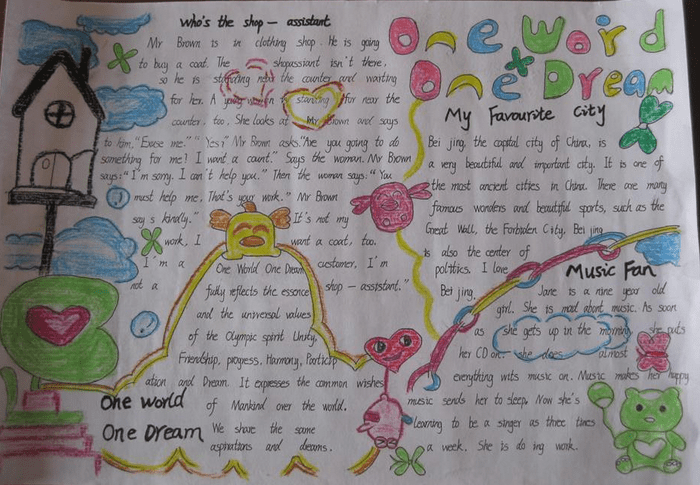 Who's the shop - assistant
Mr Brown is in clothing shop. He is going
to buy a coat. The shopassiant isn't there,
so he is standing near the counter and waiting
for her. A young woman is standing for near the
counter, too. She looks at Mr Brown and says
to him, "Excuse me." "Yes?" Mr Brown asks. "Are you going to do
something for me? I want a count." Says the woman. Mr Brown
says: "I'm sorry. I can't help you." Then the woman says: "You
must help me. That's your work." Mr Brown
say s kindly." It's not my
work, I want a coat, too.
I'm a customer, I'm
not a shop - assistant."
One World One Dream
fully reflects the essence
and the universal values
of the Olympic spirit Unity,
Friendship, progress, Harmony, Particip
ation and Dream. It expresses the common wishes
of Mankind over the world.
We share the same
aspirations and dreams.
One World
One Dream
One Word
One Dream
My Favourite City
Bei jing, the capital city of China, is
a very beautiful and important city. It is one of
the most ancient cities in China. There are many
famous wonders and beautiful sports, such as the
Great Wall, the Forbiden City, Bei jing
is also the center of
politics. I love
Bei jing.
Music Fan
Jane is a nine year old
girl. She is mad about music. As soon
as she gets up in the morning, she puts
her CD on. she does almost
everything wits music on. Music makes her happy
music sends her to sleep. Now she's
learning to be a singer as three times
a week. She is do ing work.